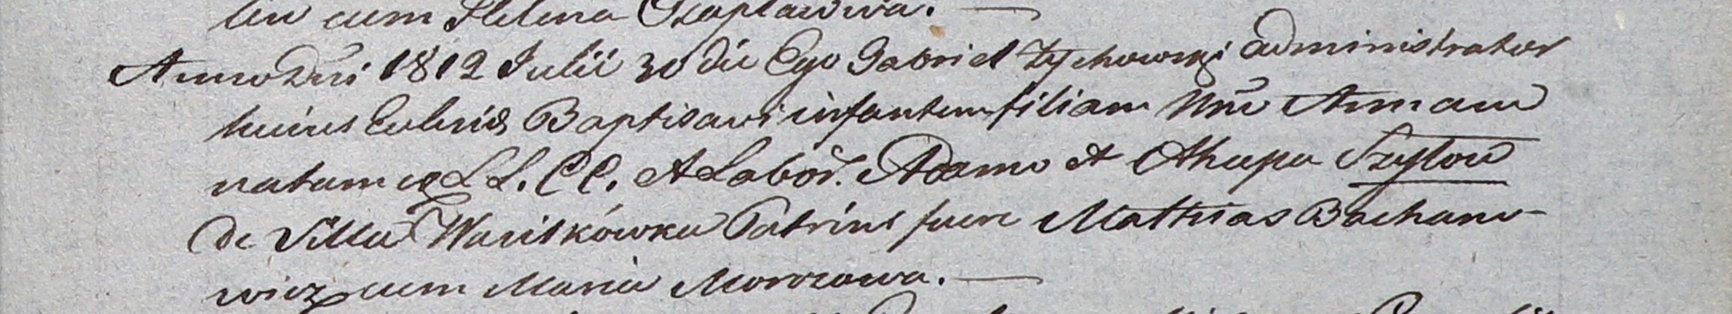 cum Helena Czaplawiva. —
Anno Dni 1812 Julii 30 die Ego Gabriel Zychowski administrator
huius Eclesiæ Baptisavi infantem filiam Nne Annam
natam ex LL. CC. et Labor. Adamo et Ahapa Szyłow
de Villa Wasiłkówka Patrini fuere Mathias Bachano-
wicz cum Maria Morozowa. —